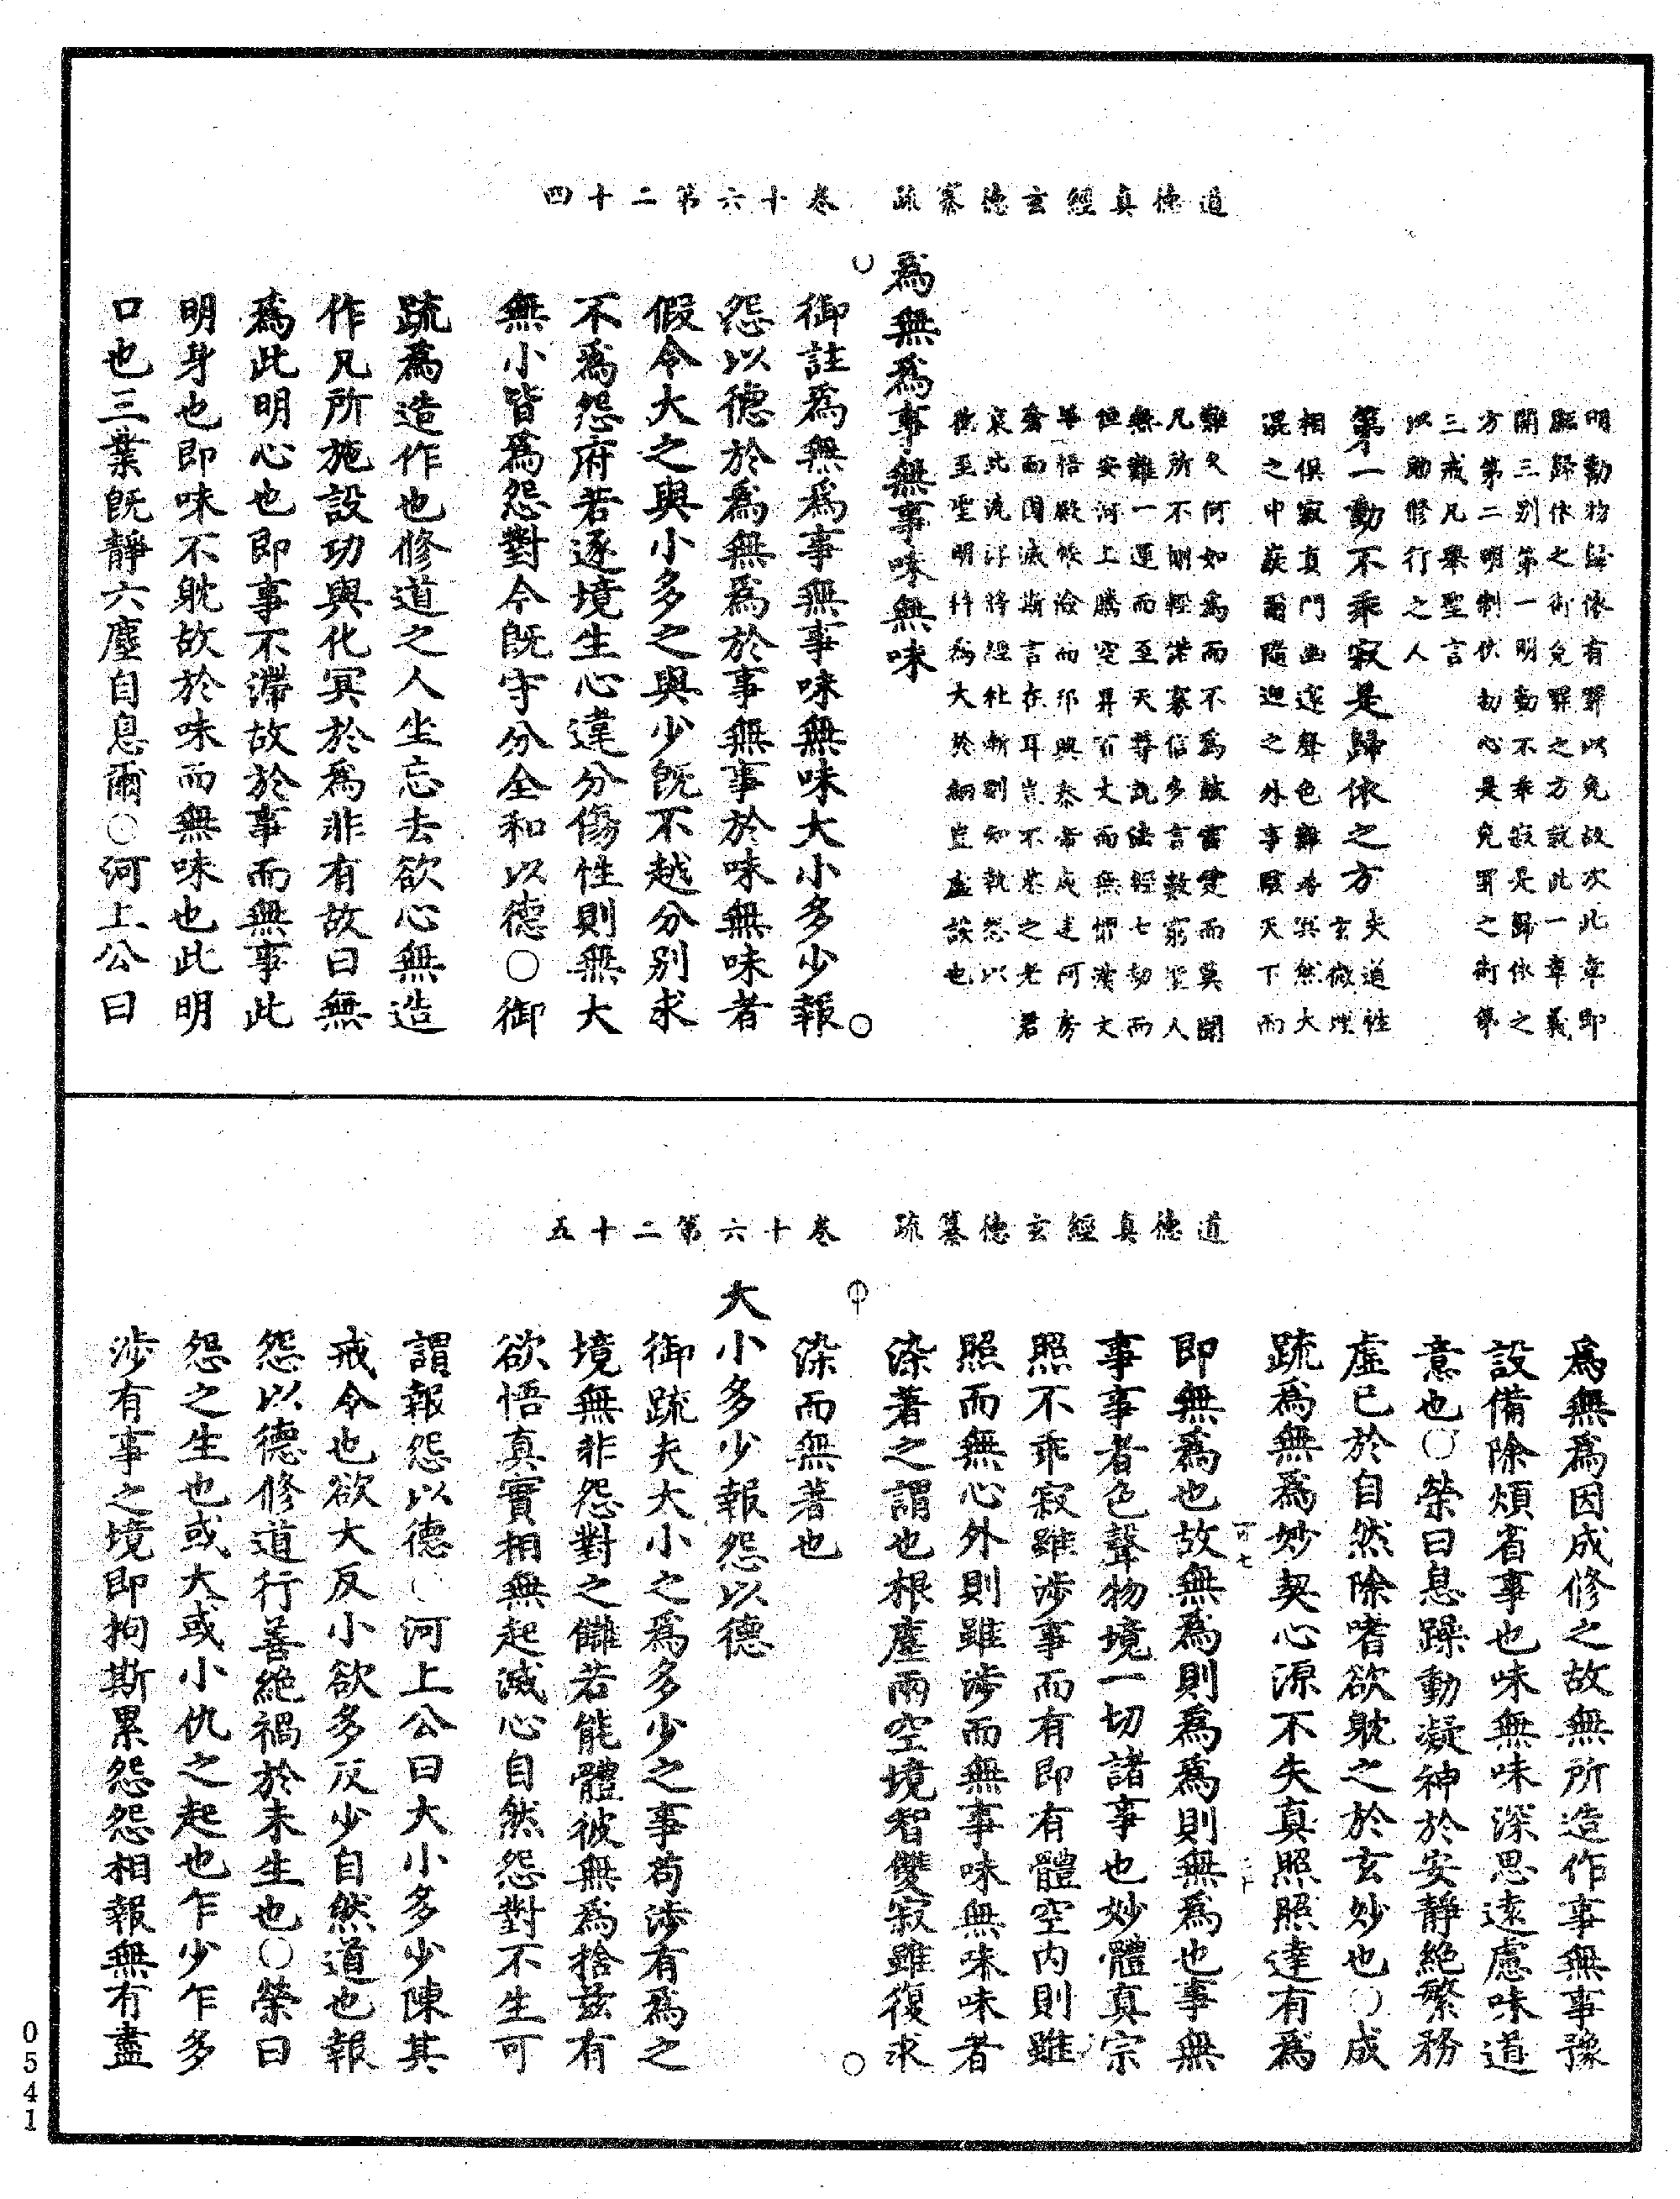 道德真經玄德纂疏　卷十六第二十四
明動物歸依有罪以免故次此章即
驅歸依之術免罪之方就此一章義
開三別第一明動不乖寂是歸依之
方第二明制伏初心是免罪之術第
三戒凡舉聖言
以勛修行之人
第一動不乖寂是歸依之方
夫道性玄微
相俱寂真門幽邃聲色難尋與然大
混之中蔟爾隨迎之外事賾天下而
難久何如為而不為皷當雙而莫開
凡所不剛輕諾寡信多言數窮聖人
無難一運而至天尊說法經七劫而
但安河上騰空昇百丈而無懼漢文
畚而國滅斯言在耳豈不恭之老君
哀此流浮將經杜漸別知執怨以
從至聖明終為大於細豈虛談也
為無為事無事味無味
御註為無為事無事味無味大小多少報
怨以德於為無為於事無事於味無味者
假令大之與小多之與少旣不越分別求
不為怨府若逐境生心違分傷性則無大
無小皆為怨對今旣守分全和以德○御
疏為造作也修道之人坐忘去欲心無造
作凡所施設功與化冥於為非有故曰無
為此明心也即事不滯故於事而無事此
明身也即味不躭故於味而無味也此明
口也三業旣靜六塵自息爾○河上公曰
道德真經玄德纂疏　卷十六第二十五
為無為因成修之故無所造作事無事豫
設備除煩省事也味無味深思遠慮味道
意也○榮曰息躁動凝神於安靜絕繁務
虛已於自然除嗜欲躭之於玄妙也○成
疏為無為妙契心源不失真照照達有為
即無為也故無為則為為則無為也事無
事事者色聲物境一切諸事也妙體真宗
照不乖寂雖涉事而有即有體空內則雖
照而無心外則雖涉而無事味無味味者
染著之謂也根塵兩空境智雙寂雖復求
染而無著也
大小多少報怨以德
御疏夫大小之為多少之事苟涉有為之
境無非怨對之讎若能體彼無為捨茲有
欲悟真實相無起滅心自然怨對不生可
謂報怨以德○河上公曰大小多少陳其
戒令也欲大反小欲多反少自然道也報
怨以德修道行善絕禍於未生也○榮曰
怨之生也或大或小仇之起也乍少乍多
涉有事之境即拘斯累怨怨相報無有盡
0541